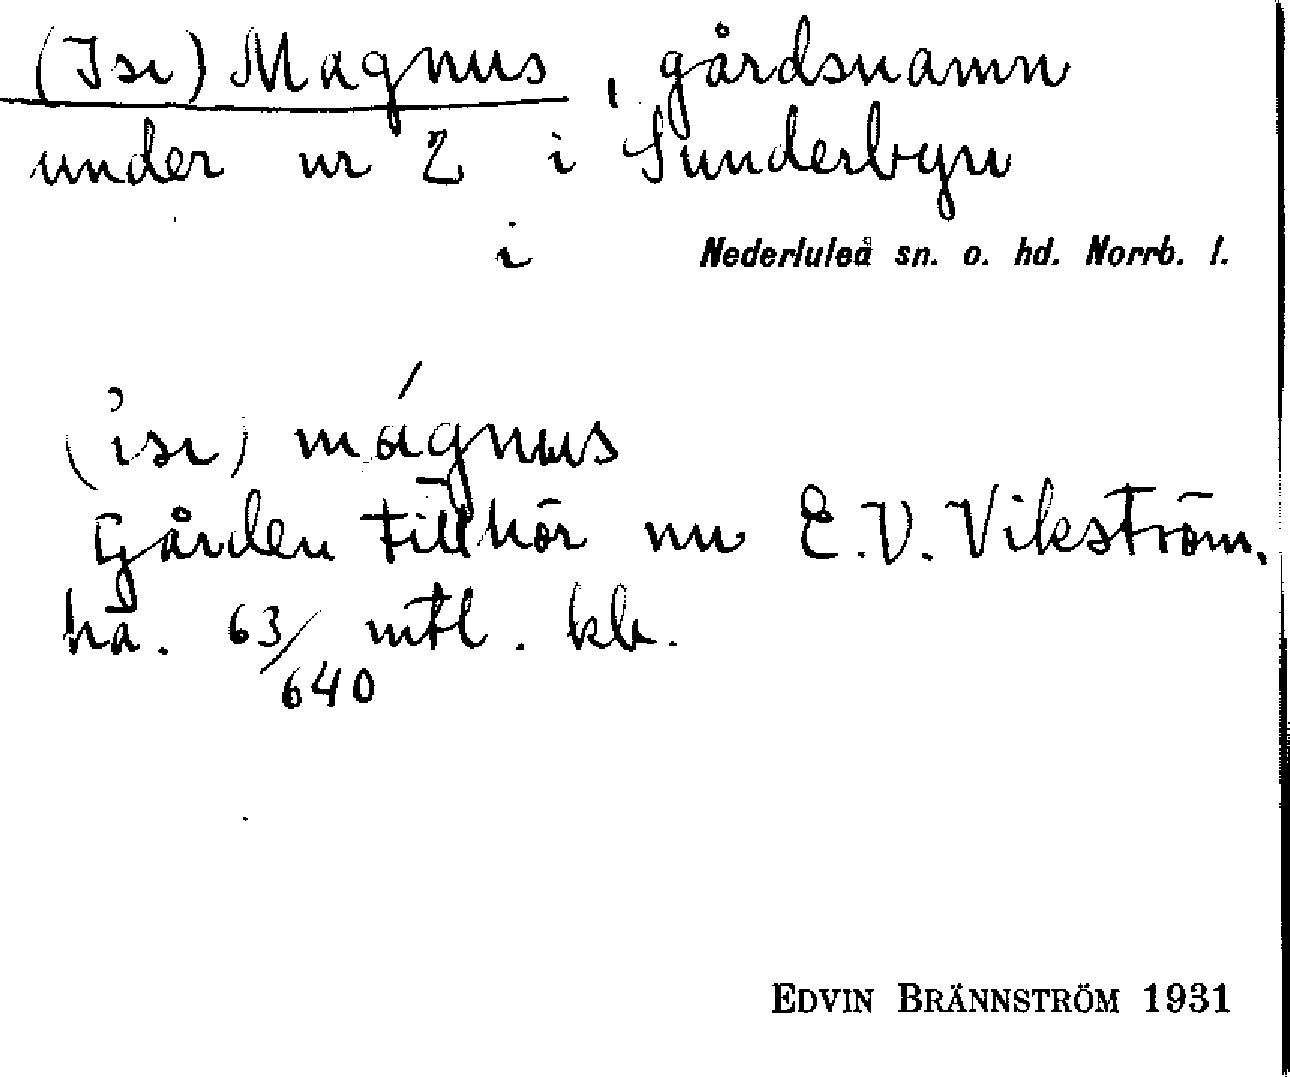 (Isi) Magnus, gårdsnamn
under nr 2 i Sunderbyn
i Nederluleå sn. o. hd. Norrb. l.
(isi) mágnus
Gården tillhör nu E.V. Vikström,
ha. 63/640 mtl. kk.
EDVIN BRÄNNSTRÖM 1931